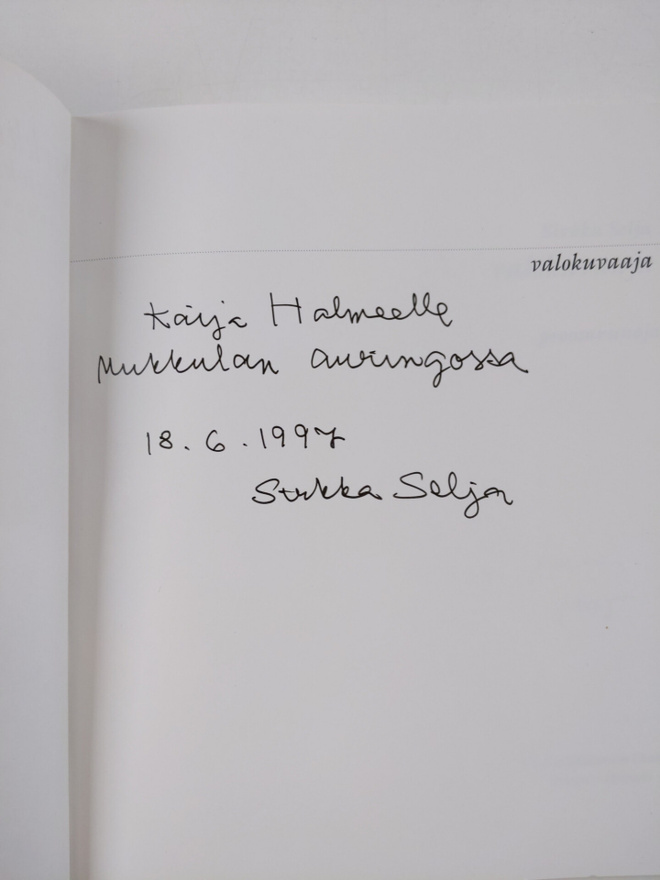 valokuvaaja
Kaija Halmeelle
Mukkulan auringossa
18.6.1997
Sirkka Selja